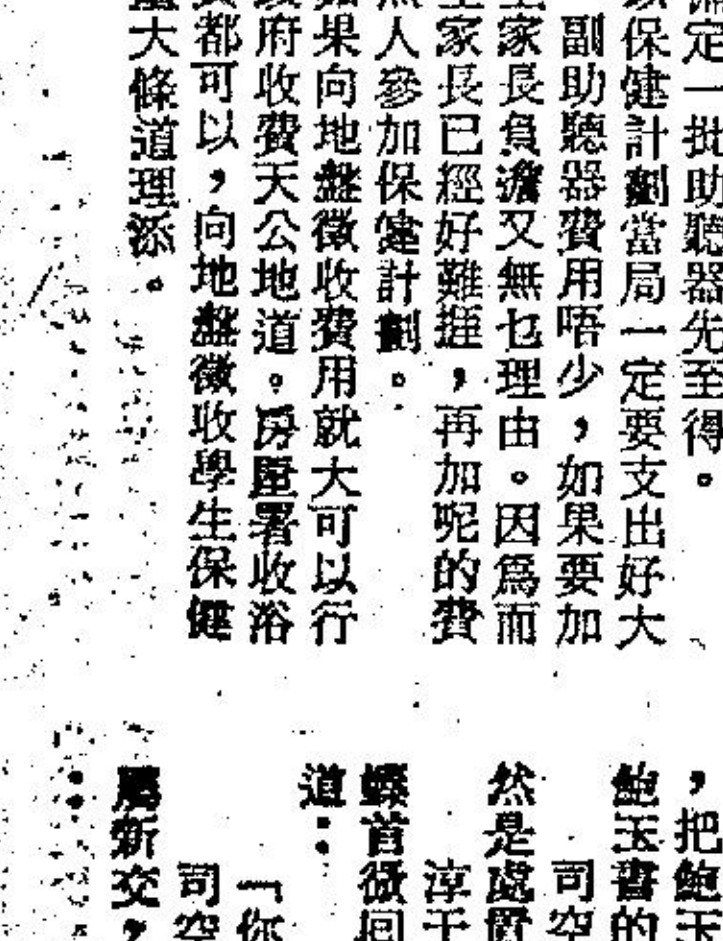 備定一批助聽器先至得。
保健計劃當局一定要支出好大
副助聽器費用唔少，如果要加
家長負擔又無乜理由。因爲而
家長已經好難捱，再加呢的費
人參加保健計劃。
果向地盤徵收費用就大可以行
府收費天公地道。房屋署收浴
都可以，向地盤徵收學生保健
大條道理添。
，把鮑玉
鮑玉書的
司空
然是處置
淳于
螓首微回
道：
「你
司空
新交，